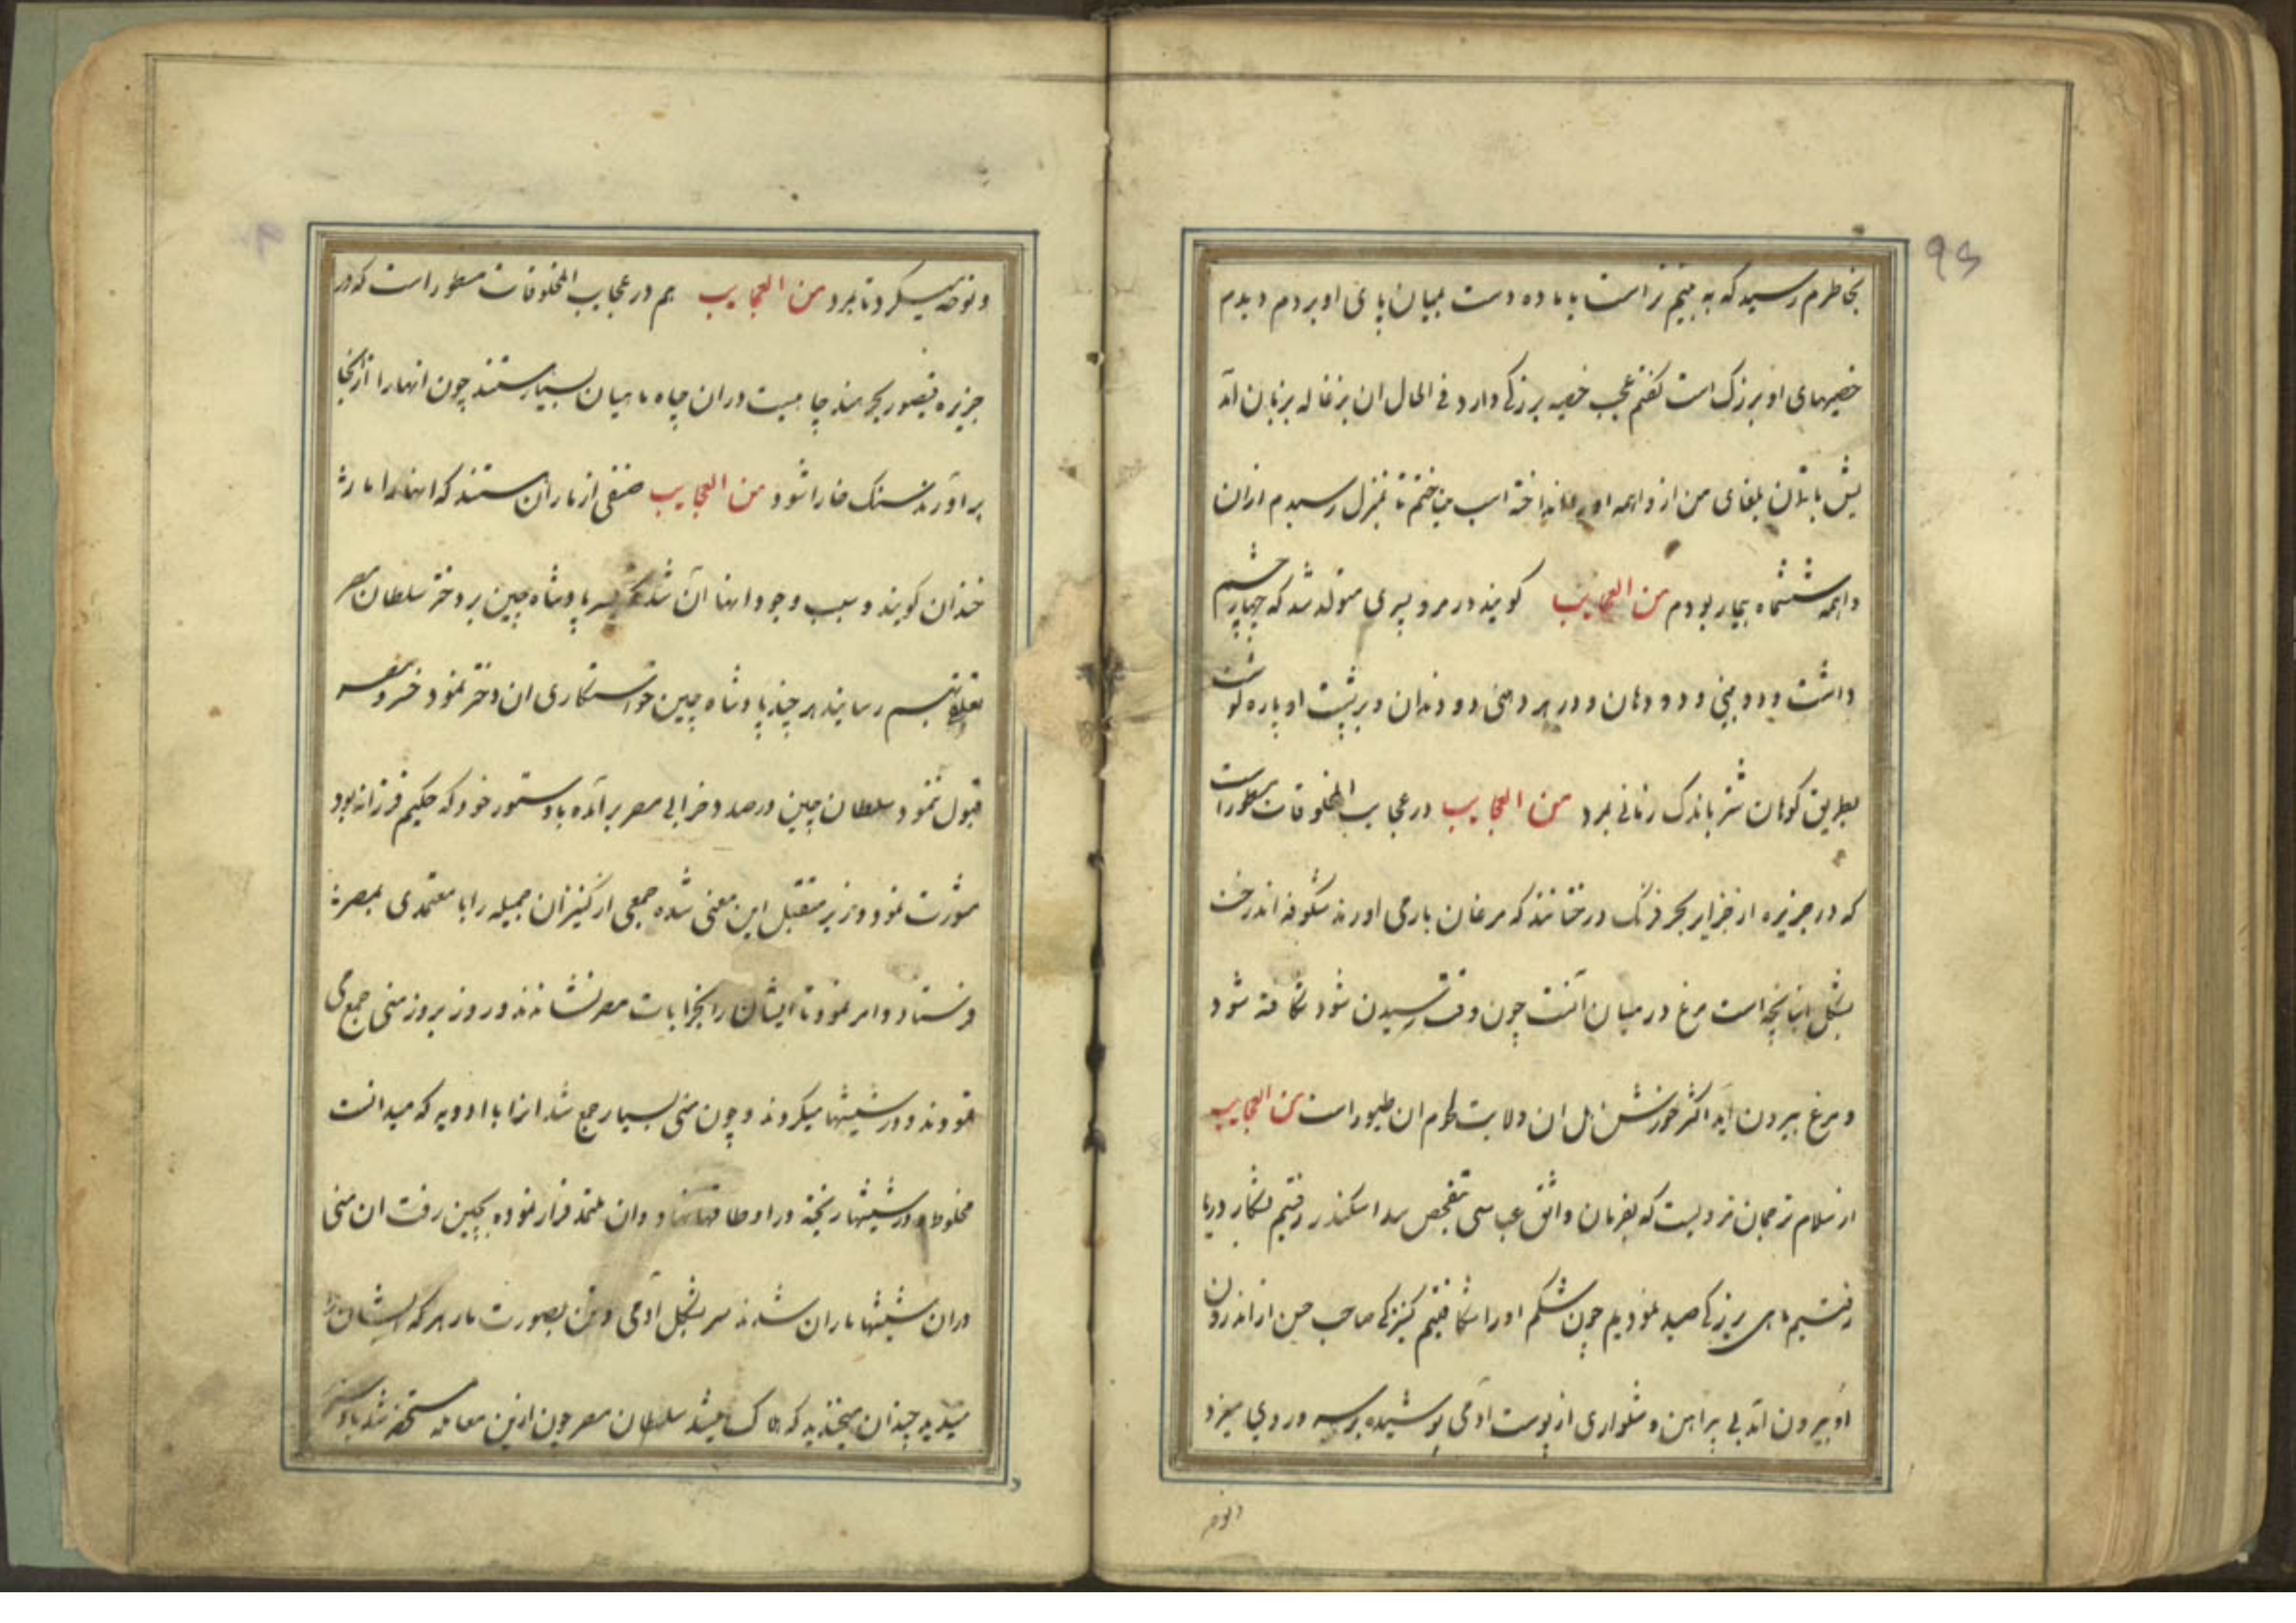 بخاطرم رسید که به بینم نر است یا ماده دست بمیان پای او بردم دیدم
خصیهای او بزرک است کفتم عجب خصیه بزرکی دارد فی الحال ان بزغاله بزبان آمد
من از واهمه او اسب تاختم تا بمنزل رسیدم ازان
واهمه ششماه بیمار بودم من العجایب کویند در مرو پسری متولد شد که چهار چشم
داشت و دو بینی و دو دهان و در هر دهنی دو دندان و بر پشت او پاره کوشت
بطریق کوهان شتر باندک زمانی بمرد من العجایب در عجایب المخلوقات مسطور است
که در جزیره از جزایر بحر فرنک درختانند که مرغان بار می اورند شکوفه اندرخت
بشکل انبانچه است مرغ در میان آنست چون وقت رسیدن شود شکافته شود
و مرغ بیرون آید اکثر خورش اهل ان ولایت لحوم ان طیور است من العجایب
از سلام ترجمان مرویست که بفرمان واثق عباسی بتفحص سد اسکندر رفتیم بشکار دریا
رفتیم ماهی بزرکی صید نمودیم چون شکم اورا شکافتیم کنیزکی صاحب حسن از اندرون
او بیرون آمد بی پیراهن و شلواری از پوست آدمی پوشیده بر سر و روی میزد
و نوحه
۹۶
و نوحه میکرد تا بمرد من العجایب هم در عجایب المخلوقات مسطور است که در
جزیره قیصور بحر هند چاهیست دران چاه ماهیان بسیار هستند چون انهارا از انجا
بر آورند سنک خارا شود من العجایب صنفی از ماران هستند که انهارا مار
خندان کویند و سبب وجود انها آن شد که پسر پادشاه چین بر دختر سلطان مصر
رسانید هر چند پادشاه چین خواستکاری ان دختر نمود خسرو مصر
قبول ننمود سلطان چین درصدد خرابی مصر برآمده با دستور خود که حکیم فرزانه بود
مشورت نمود وزیر متقبل این معنی شده جمعی از کنیزان جمیله را با معتمدی بمصر
فرستاد و امر نمود تا ایشان را بخرابات مصر نشاندند و روز بروز منی جمع می
نمودند و در شیشها میکردند و چون منی بسیار جمع شد انرا با ادویه که میدانست
مخلوط و در شیشها ریخته در اوطاقها نهاد و ان معتمد فرار نموده بچین رفت ان منی
دران شیشها ماران شدند سر بشکل آدمی و تن بصورت مار هر که ایشان را
میدید چندان میخندید که هلاک میشد سلطان مصر چون ازین معامله مستحضر شد با وزیر